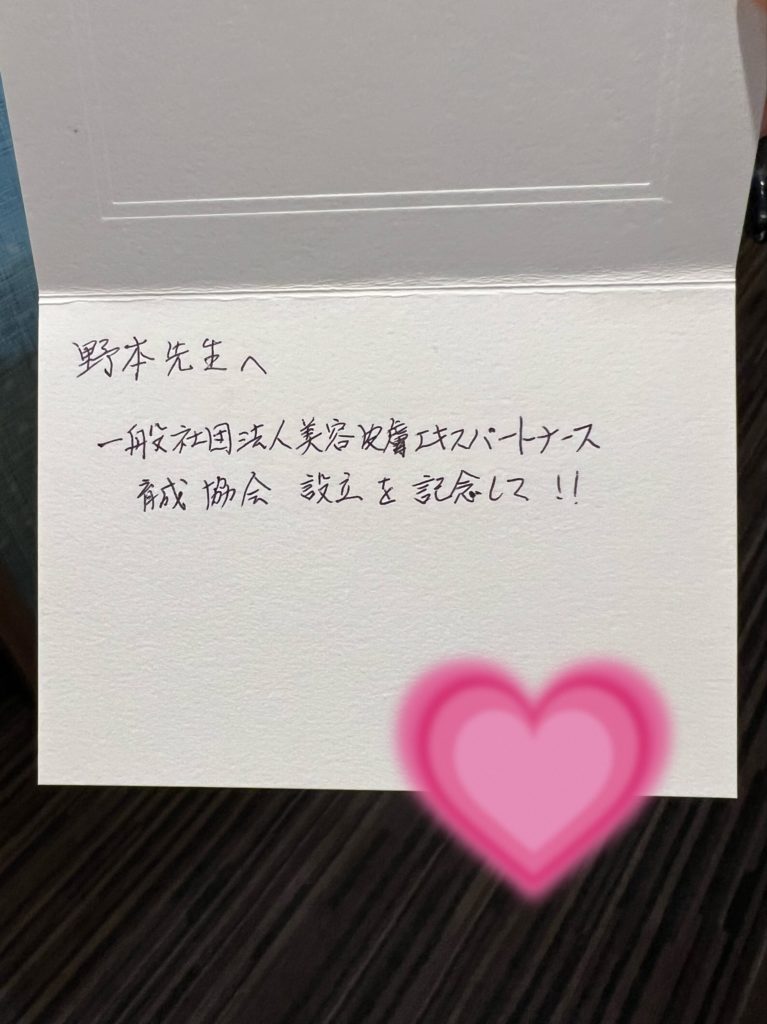 野本先生へ
一般社団法人美容皮膚エキスパートナース
育成協会 設立を記念して!!